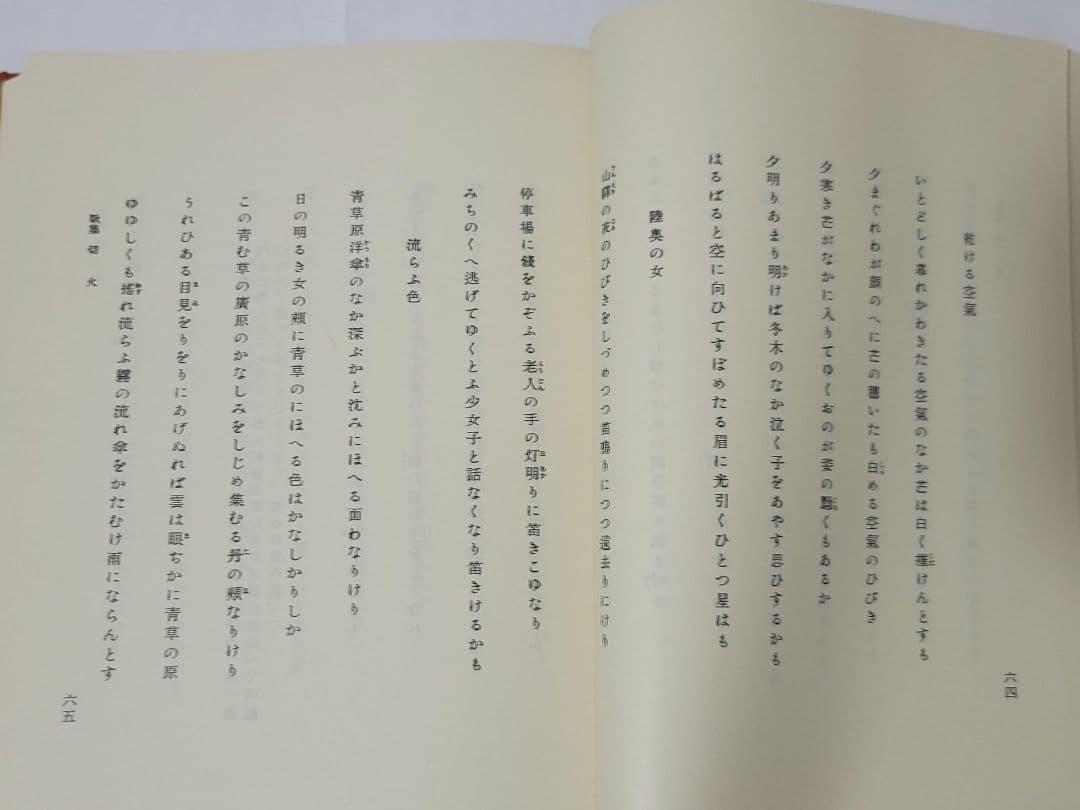 乾ける空氣
いとどしく暮れかわきたる空氣のなか芒は白く擢けんとすも
夕まぐれわが顏のへに芒の穗いたも白める空氣のひびき
夕寒き芒がなかに入りてゆくおのが姿の
くもあるか
夕明りあまり明けば冬木のなか泣く子をあやす思ひするかも
はるばると空に向ひてすぼめたる眉に光引くひとつ星はも
陸奥の女
山驛の夜のひびきをしづめつつ笛鳴りにつつ遠去りにけり
六四
停車場に錢をかぞふる老人の手の灯明りに笛きこゆなり
みちのくへ逃げてゆくとふ少女子と話なくなり笛きけるかも
流らふ色
靑草原洋傘のなか深ぶかと沈みにほへる面わなりけり
日の明るき女の頰に靑草のにほへる色はかなしかりしか
この靑む草の廣原のかなしみをしじめ集むる丹の頰なりけり
うれひある目見をりをりにあげぬれば雲は眼ぢかに靑草の原
ゆゆしくも搖れ流らふ霧の流れ傘をかたむけ雨にならんとす
歌集 切火
六五